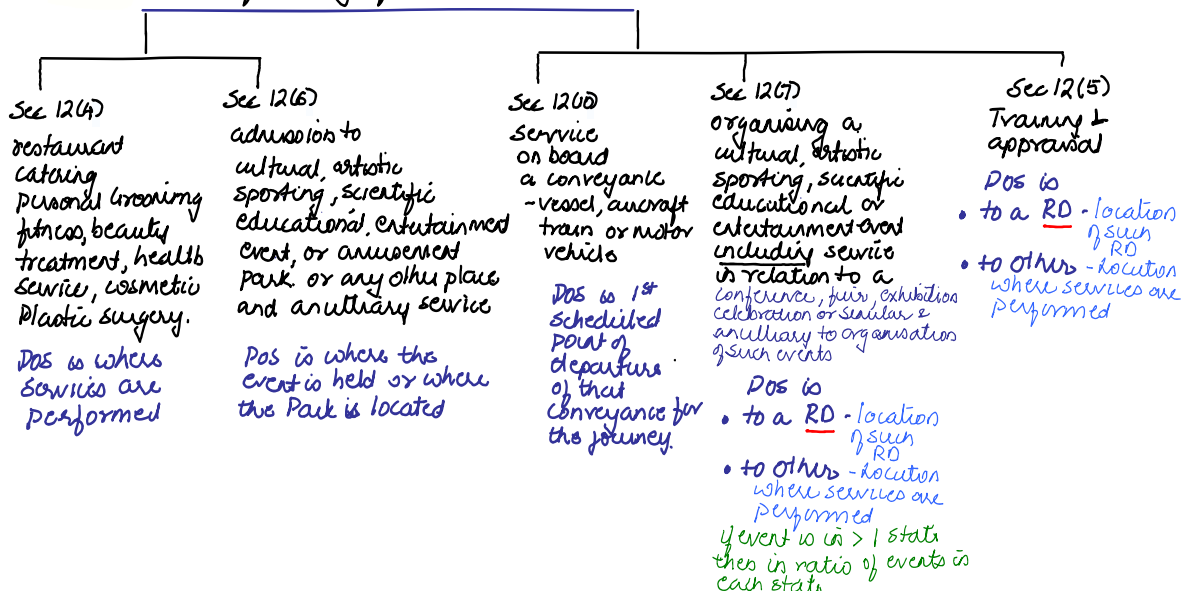 Sec 12(4)
restaurant
catering
Personal Grooming
fitness, beauty
treatment, health
service, cosmetic
Plastic surgery.
POS is where
services are
performed
Sec 12(6)
admission to
cultural, artistic
sporting, scientific
educational, entertainment
event, or amusement
Park. or any other place
and ancilliary service
POS is where the
event is held or where
the Park is located
Sec 12(10)
service
on board
a conveyance
- vessel, aircraft
train or motor
vehicle
POS is 1st
scheduled
point of
departure
of that
conveyance for
the journey.
Sec 12(7)
organising a
cultural, artistic
sporting, scientific
educational or
entertainment event
including service
in relation to a
conference, fair, exhibition
celebration or similar &
ancilliary to organisation
of such events
POS is
• to a RD - location
of such
RD
• to other - Location
where services are
performed
if event is in > 1 state
then in ratio of events in
each state
Sec 12(5)
Training &
appraisal
POS is
• to a RD - location
of such
RD
• to other - Location
where services are
performed